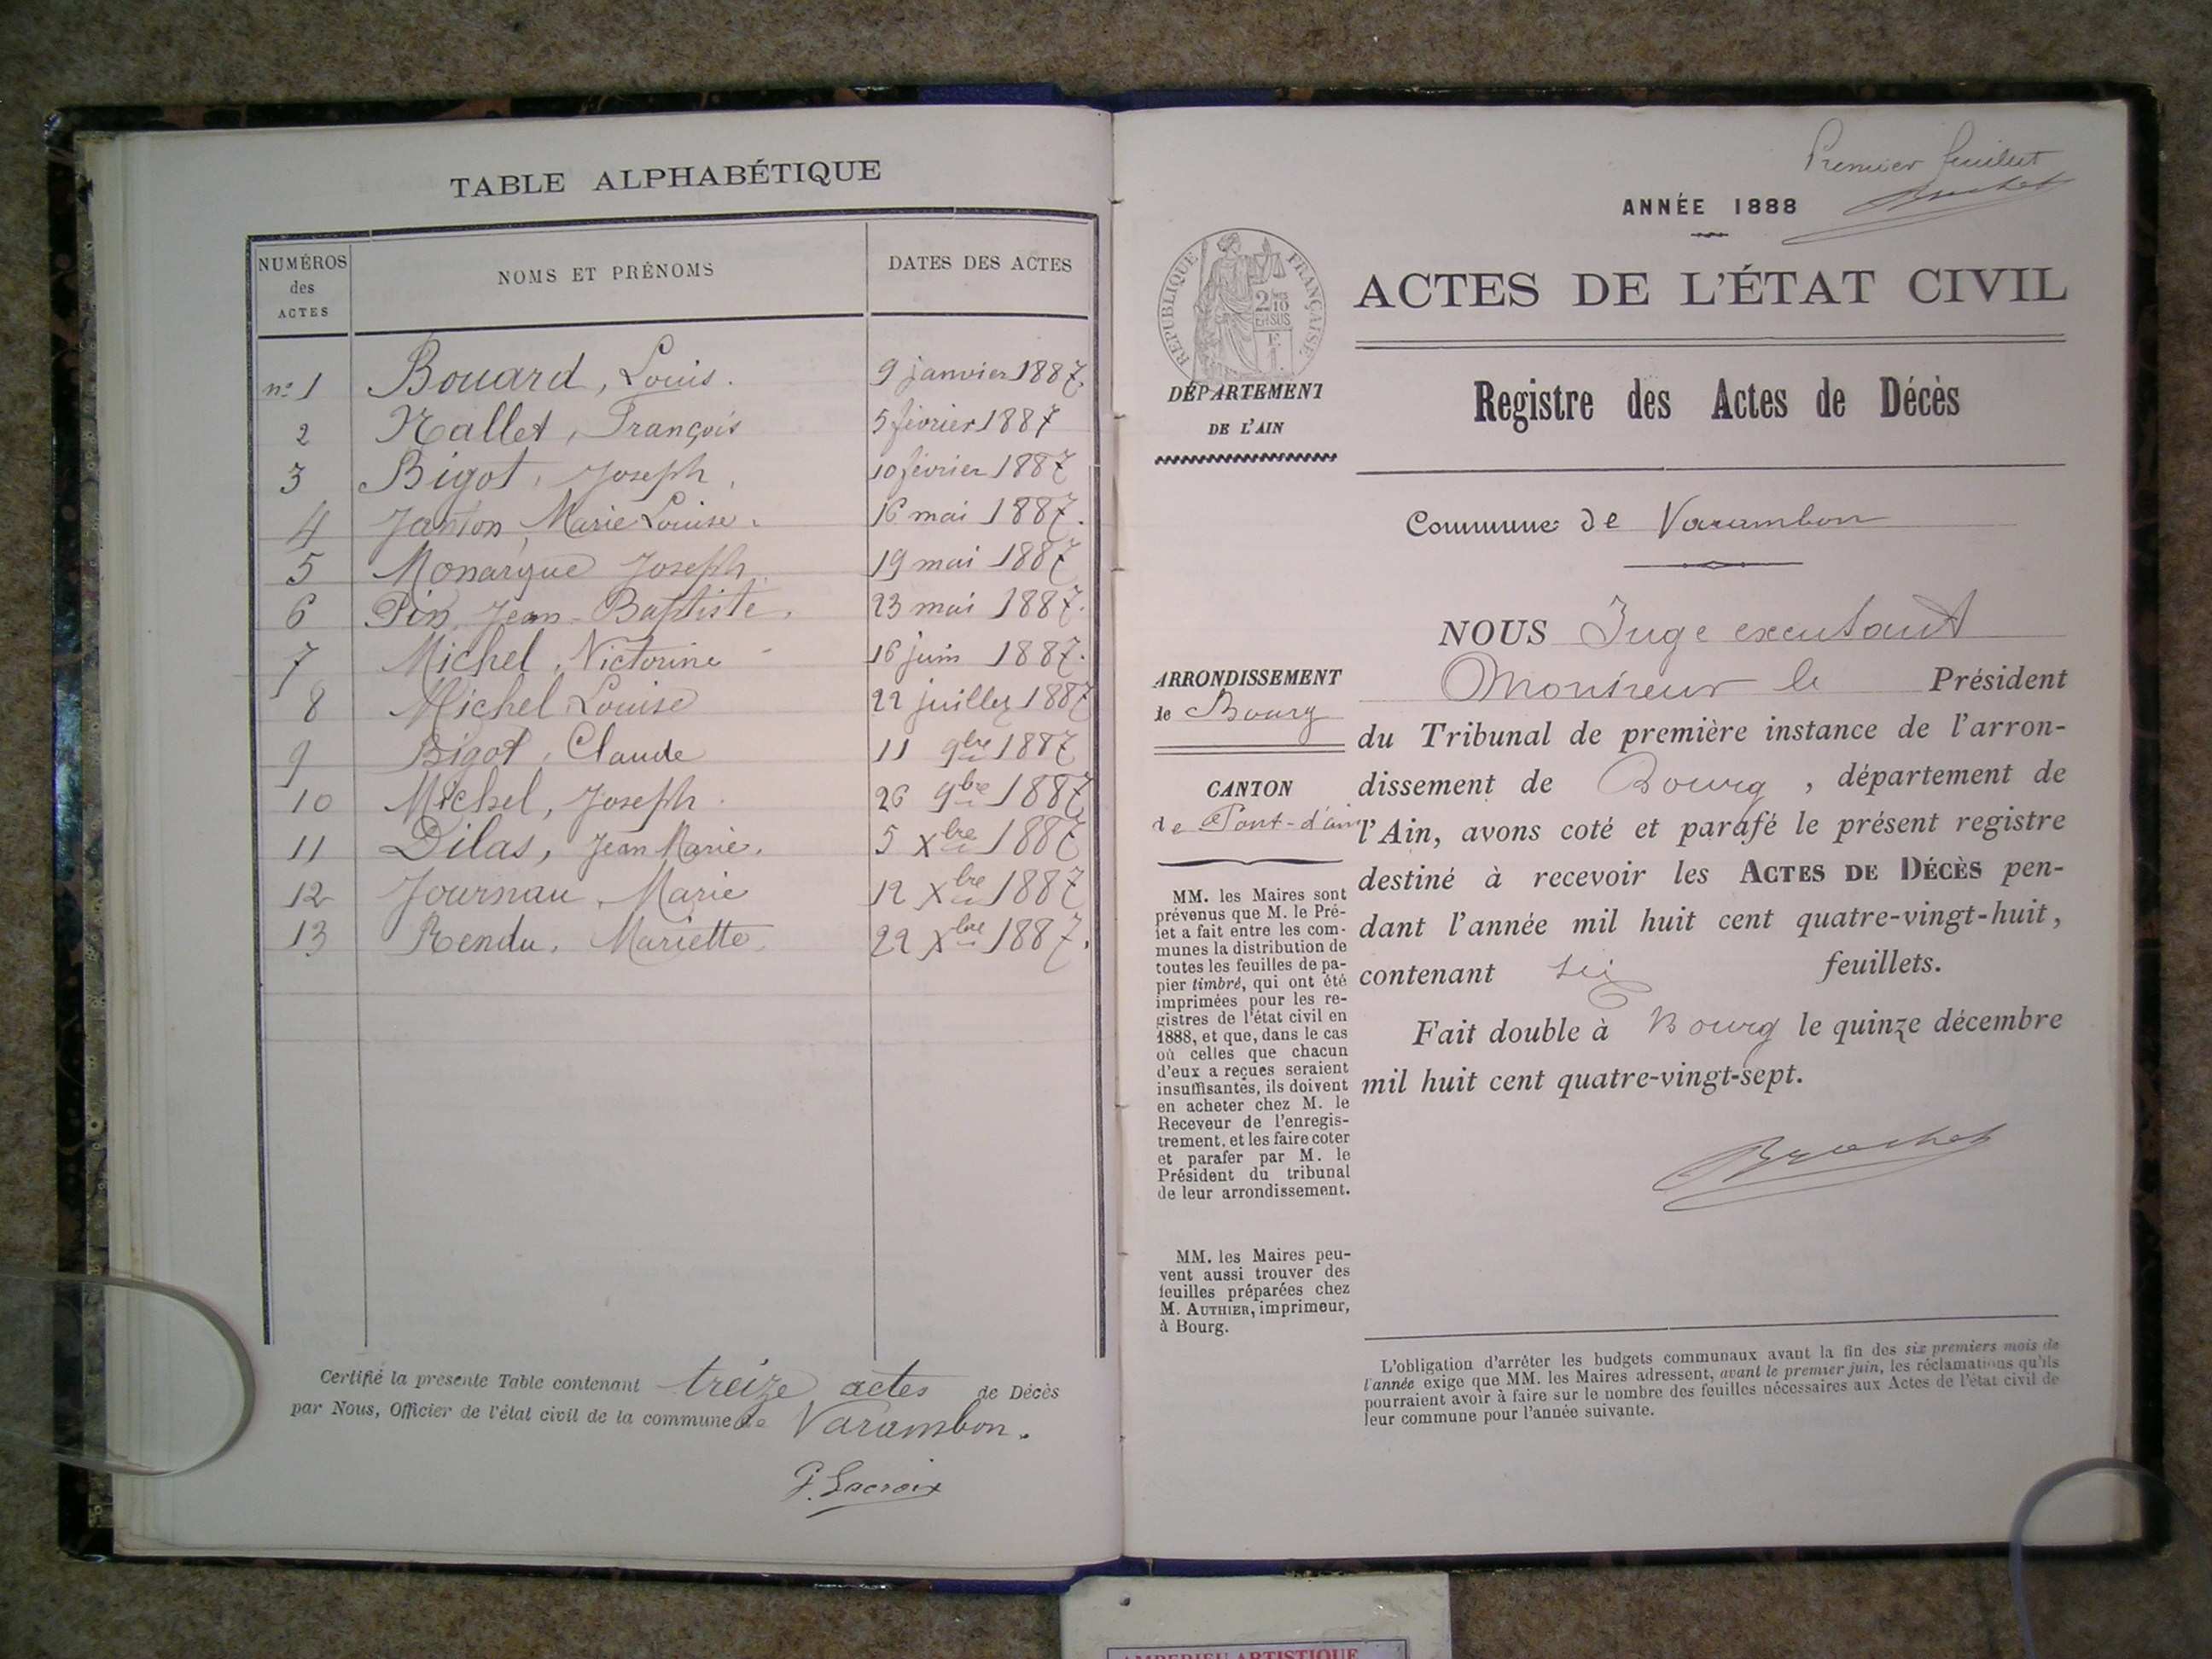 TABLE ALPHABÉTIQUE
NUMÉROS
des
ACTES
NOMS ET PRÉNOMS
DATES DES ACTES
n° 1 Bouard, Louis. 9 janvier 1887.
2 Hallet, François 5 février 1887
3 Bigot, Joseph, 10 février 1887
4 Janton, Marie Louise. 16 mai 1887.
5 Monarque Joseph 19 mai 1887
6 Pin, Jean-Baptiste. 23 mai 1887.
7 Michel, Victorine 16 juin 1887.
8 Michel Louise 22 juillet 1887
9 Bigot, Claude 11 9bre 1887
10 Michel, Joseph. 26 9bre 1887
11 Dilas, Jean Marie. 5 Xbre 1887
12 Journau, Marie 12 Xbre 1887
13 Rendu, Mariette. 22 Xbre 1887.
Certifié la présente Table contenant treize actes de Décès
par Nous, Officier de l'état civil de la commune de Varambon.
Lacroix
Premier feuillet
Brochet
ANNÉE 1888
RÉPUBLIQUE FRANÇAISE
2/10
EN SUS
ACTES DE L'ÉTAT CIVIL
DÉPARTEMENT
DE L'AIN
Registre des Actes de Décès
Commune de Varambon
ARRONDISSEMENT
de Bourg
CANTON
de Pont-d'ain
MM. les Maires sont
prévenus que M. le Pré-
fet a fait entre les com-
munes la distribution de
toutes les feuilles de pa-
pier timbré, qui ont été
imprimées pour les re-
gistres de l'état civil en
1888, et que, dans le cas
où celles que chacun
d'eux a reçues seraient
insuffisantes, ils doivent
en acheter chez M. le
Receveur de l'enregis-
trement, et les faire coter
et parafer par M. le
Président du tribunal
de leur arrondissement.
MM. les Maires peu-
vent aussi trouver des
feuilles préparées chez
M. AUTHIER, imprimeur,
à Bourg.
NOUS Juge excusant
Monsieur le Président
du Tribunal de première instance de l'arron-
dissement de Bourg, département de
l'Ain, avons coté et parafé le présent registre
destiné à recevoir les ACTES DE DÉCÈS pen-
dant l'année mil huit cent quatre-vingt-huit,
contenant six feuillets.
Fait double à Bourg le quinze décembre
mil huit cent quatre-vingt-sept.
Brochet
L'obligation d'arrêter les budgets communaux avant la fin des six premiers mois de
l'année exige que MM. les Maires adressent, avant le premier juin, les réclamations qu'ils
pourraient avoir à faire sur le nombre des feuilles nécessaires aux Actes de l'état civil de
leur commune pour l'année suivante.
ARTISTIQUE